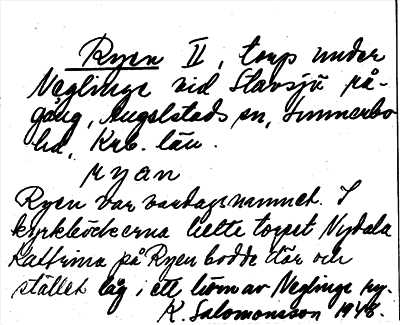 Ryen II, torp under
Neglinge vid Slavsjö rå-
gång, Angelstads sn, Sunnerbo
hd, Krb. län.
ryan
Ryen var vardagsnamnet. I
kyrkböckerna hette torpet Nydala
Kathrina på Ryen bodde där och
stället låg i ett hörn av Neglinge ry.
K. Salomonsson 1948.